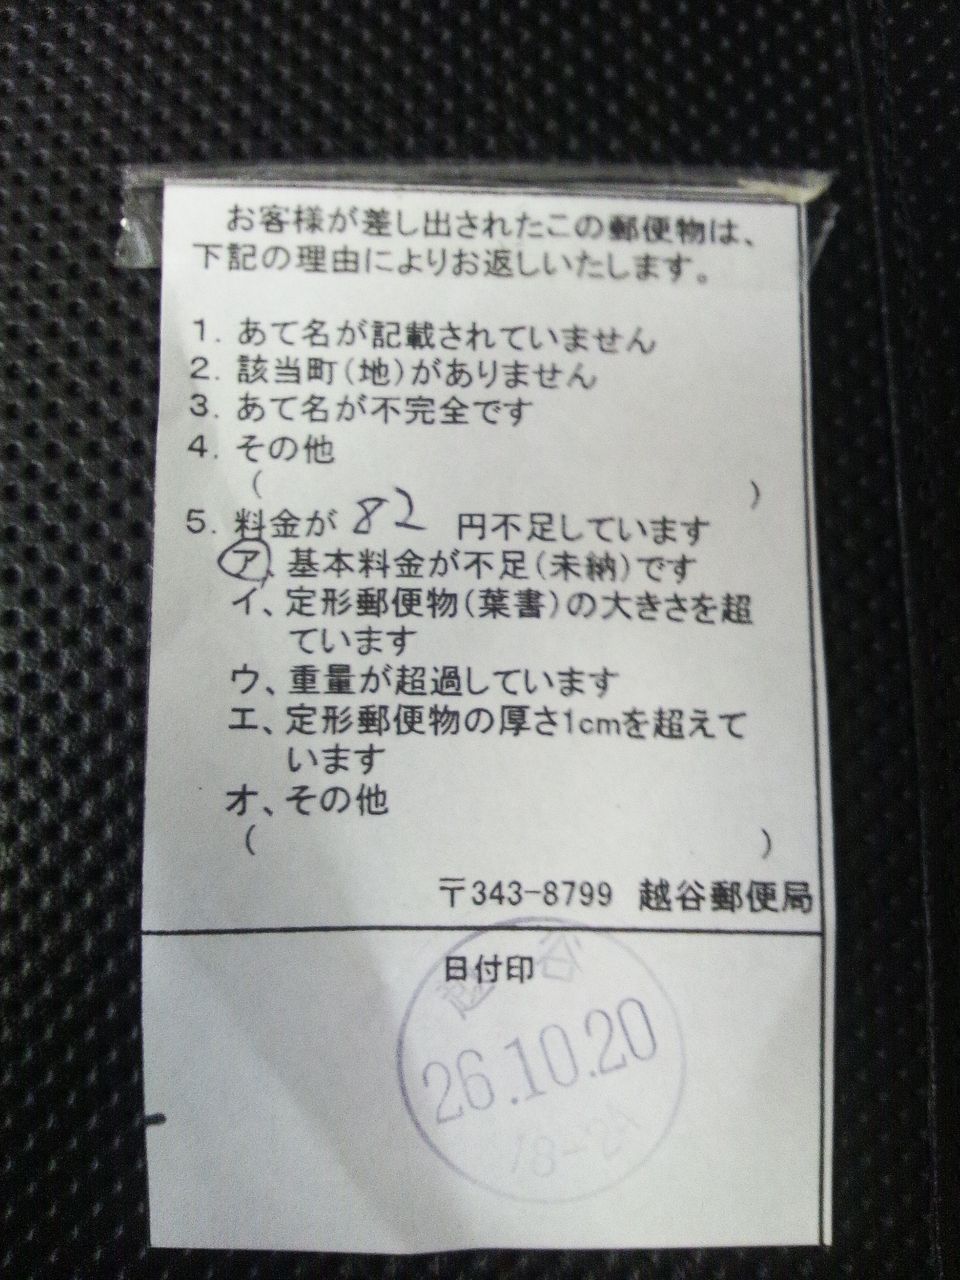 お客様が差し出されたこの郵便物は、
下記の理由によりお返しいたします。
1. あて名が記載されていません
2. 該当町(地)がありません
3. あて名が不完全です
4. その他
( )
5. 料金が 82 円不足しています
ア、基本料金が不足(未納)です
イ、定形郵便物(葉書)の大きさを超
ています
ウ、重量が超過しています
エ、定形郵便物の厚さ1cmを超えて
います
オ、その他
( )
〒343-8799 越谷郵便局
日付印
越谷
26.10.20
18-24